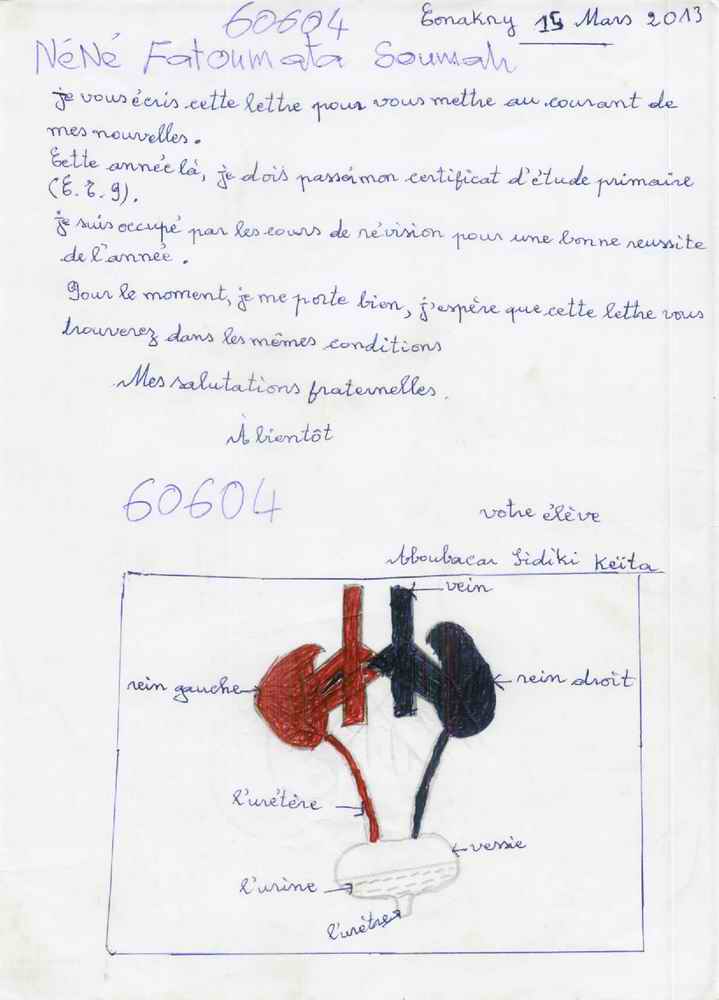 60604
Conakry 15 Mars 2013
NéNé Fatoumata Soumah
je vous écris cette lettre pour vous mettre au courant de
mes nouvelles.
Cette année là, je dois passé mon certificat d'étude primaire
(C.E.P).
je suis occupé par les cours de révision pour une bonne reussite
de l'année.
Pour le moment, je me porte bien, j'espère que cette lettre vous
trouverez dans les mêmes conditions
Mes salutations fraternelles.
À bientôt
60604
votre élève
Aboubacar Sidiki Keïta
vein
rein gauche
rein droit
l'urétère
vessie
l'urine
l'urètre